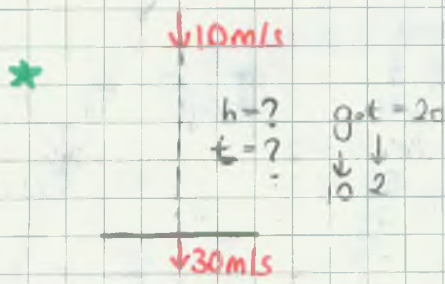 10m/s
h=?
t=?
g.t = 20
10 2
30m/s